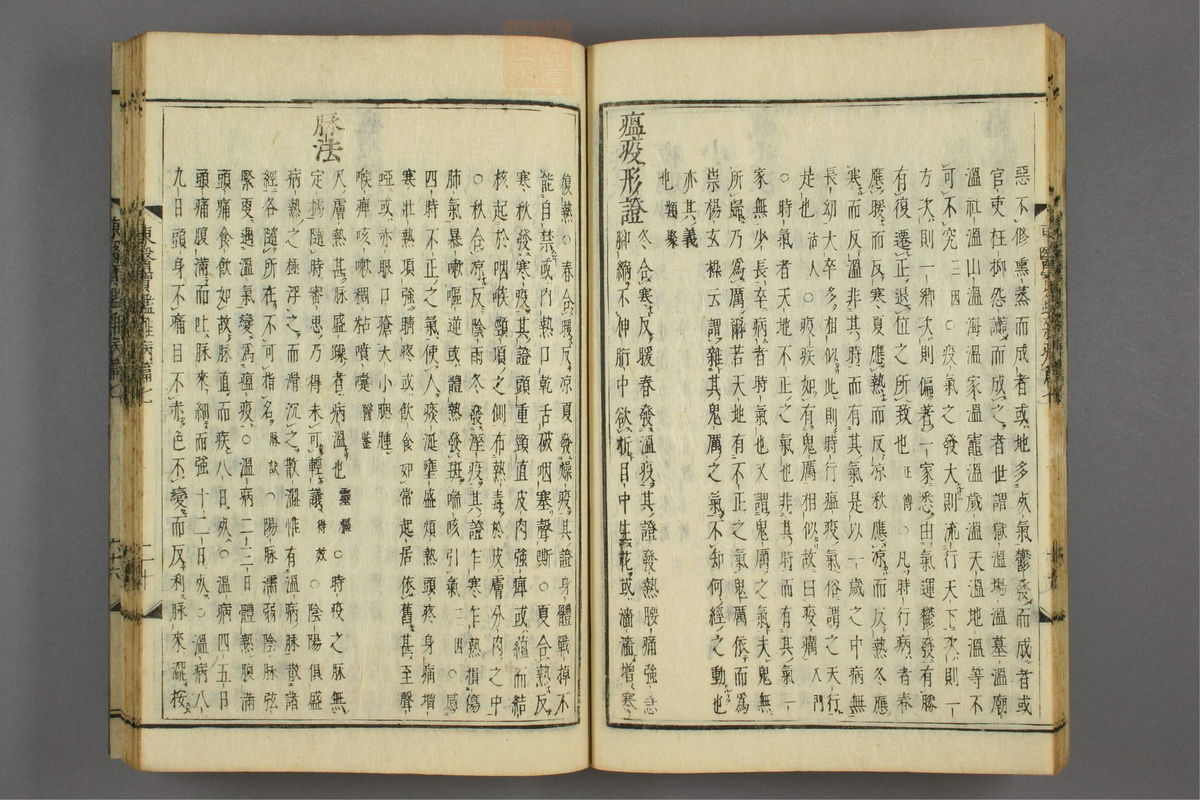 惡不修熏蒸而成者或地多灰氣鬱發而成者或
官吏枉抑怨讟而成之者世謂獄溫場溫墓溫廟
溫社溫山溫海溫家溫竈溫歲溫天溫地溫等不
可不究三因○疫氣之發大則流行天下次則一
方次則一鄉次則偏著一家悉由氣運鬱發有勝
有復遷正退位之所致也正傳○凡時行病者春
應暖而反寒夏應熱而反凉秋應凉而反熱冬應
寒而反溫非其時而有其氣是以一歲之中病無
長幼大卒多相似此則時行瘟疫氣俗謂之天行
是也活人○疫疾如有鬼厲相似故曰疫癘入門
○時氣者天地不正之氣也非其時而有其氣一
家無少長卒病者時氣也又謂鬼厲之氣夫鬼無
所歸乃爲厲爾若天地有不正之氣鬼厲依而爲
祟楊玄操云謂雜其鬼厲之氣不知何經之動也
亦其義
也類聚
瘟疫形證
冬合寒反暖春發溫疫其證發熱腰痛強急
脚縮不伸胻中欲折目中生花或濇濇增寒
復熱○春合暖反凉夏發燥疫其證身體戰掉不
能自禁或內熱口乾舌破咽塞聲嘶○夏合熱反
寒秋發寒疫其證頭重頸直皮肉強痺或蘊而結
核起於咽喉頸項之側布熱毒於皮膚分肉之中
○秋合凉反陰雨冬發溼疫其證乍寒乍熱損傷
肺氣暴嗽嘔逆或體熱發斑喘咳引氣三因○感
四時不正之氣使人痰涎壅盛煩熱頭疼身痛增
寒壯熱項強睛疼或飮食如常起居依舊甚至聲
啞或赤眼口瘡大小腮腫
喉痺咳嗽稠粘噴嚔醫鑒
脉法
尺膚熱甚脉盛躁者病溫也靈樞○時疫之脉無
定據隨時審思乃得未可輕議得效○陰陽俱盛
病熱之極浮之而滑沉之散澀惟有溫病脉散諸
經各隨所在不可指名脉訣○陽脉濡弱陰脉弦
緊更遇溫氣變爲瘟疫○溫病二三日體熱腹滿
頭痛食飮如故脉直而疾八日灰○溫病四五日
頭痛腹滿而吐脉來細而強十二日灰○溫病八
九日頭身不痛目不赤色不變而反利脉來澀按